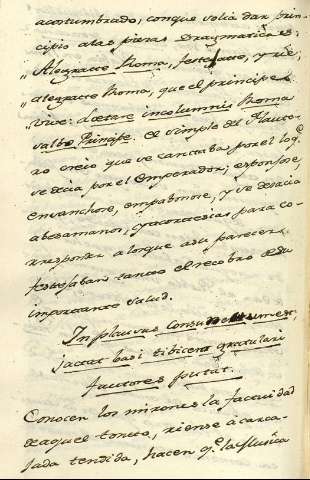 acostumbrado, conque solia dar prin-
cipio a las piezas Dragmaticas:
"Alegrate Roma, festejate, y rie,
"alegrate Roma, que el principe
"vive: Lœtare incolumnis Roma
salbo Principe. el simple del Flaute-
ro creio que se cantaba por el lo q.e
se decia por el Emperador; esponjose,
ensanchose, empabonose, y se deacia
abesamanos, y a cortesias para co-
rresponder a los que a su parecer
festejaban tanto el recobro de su
importante salud.
In plausus consurrectum est;
jactat basi tibicen gratulari
fautores putat.
Conocen los mirones la fatuidad
de aquel tonto, riense a carca-
jada tendida, hacen q.e la Musica